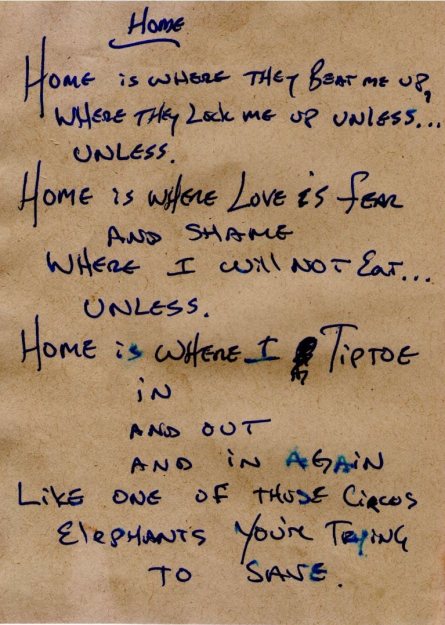 Home
Home is where they Beat me up,
where they Lock me up unless...
unless.
Home is where Love is fear
and shame
where I will not Eat...
unless.
Home is where I Tiptoe
in
and out
and in again
Like one of those Circus
Elephants You're Trying
to save.